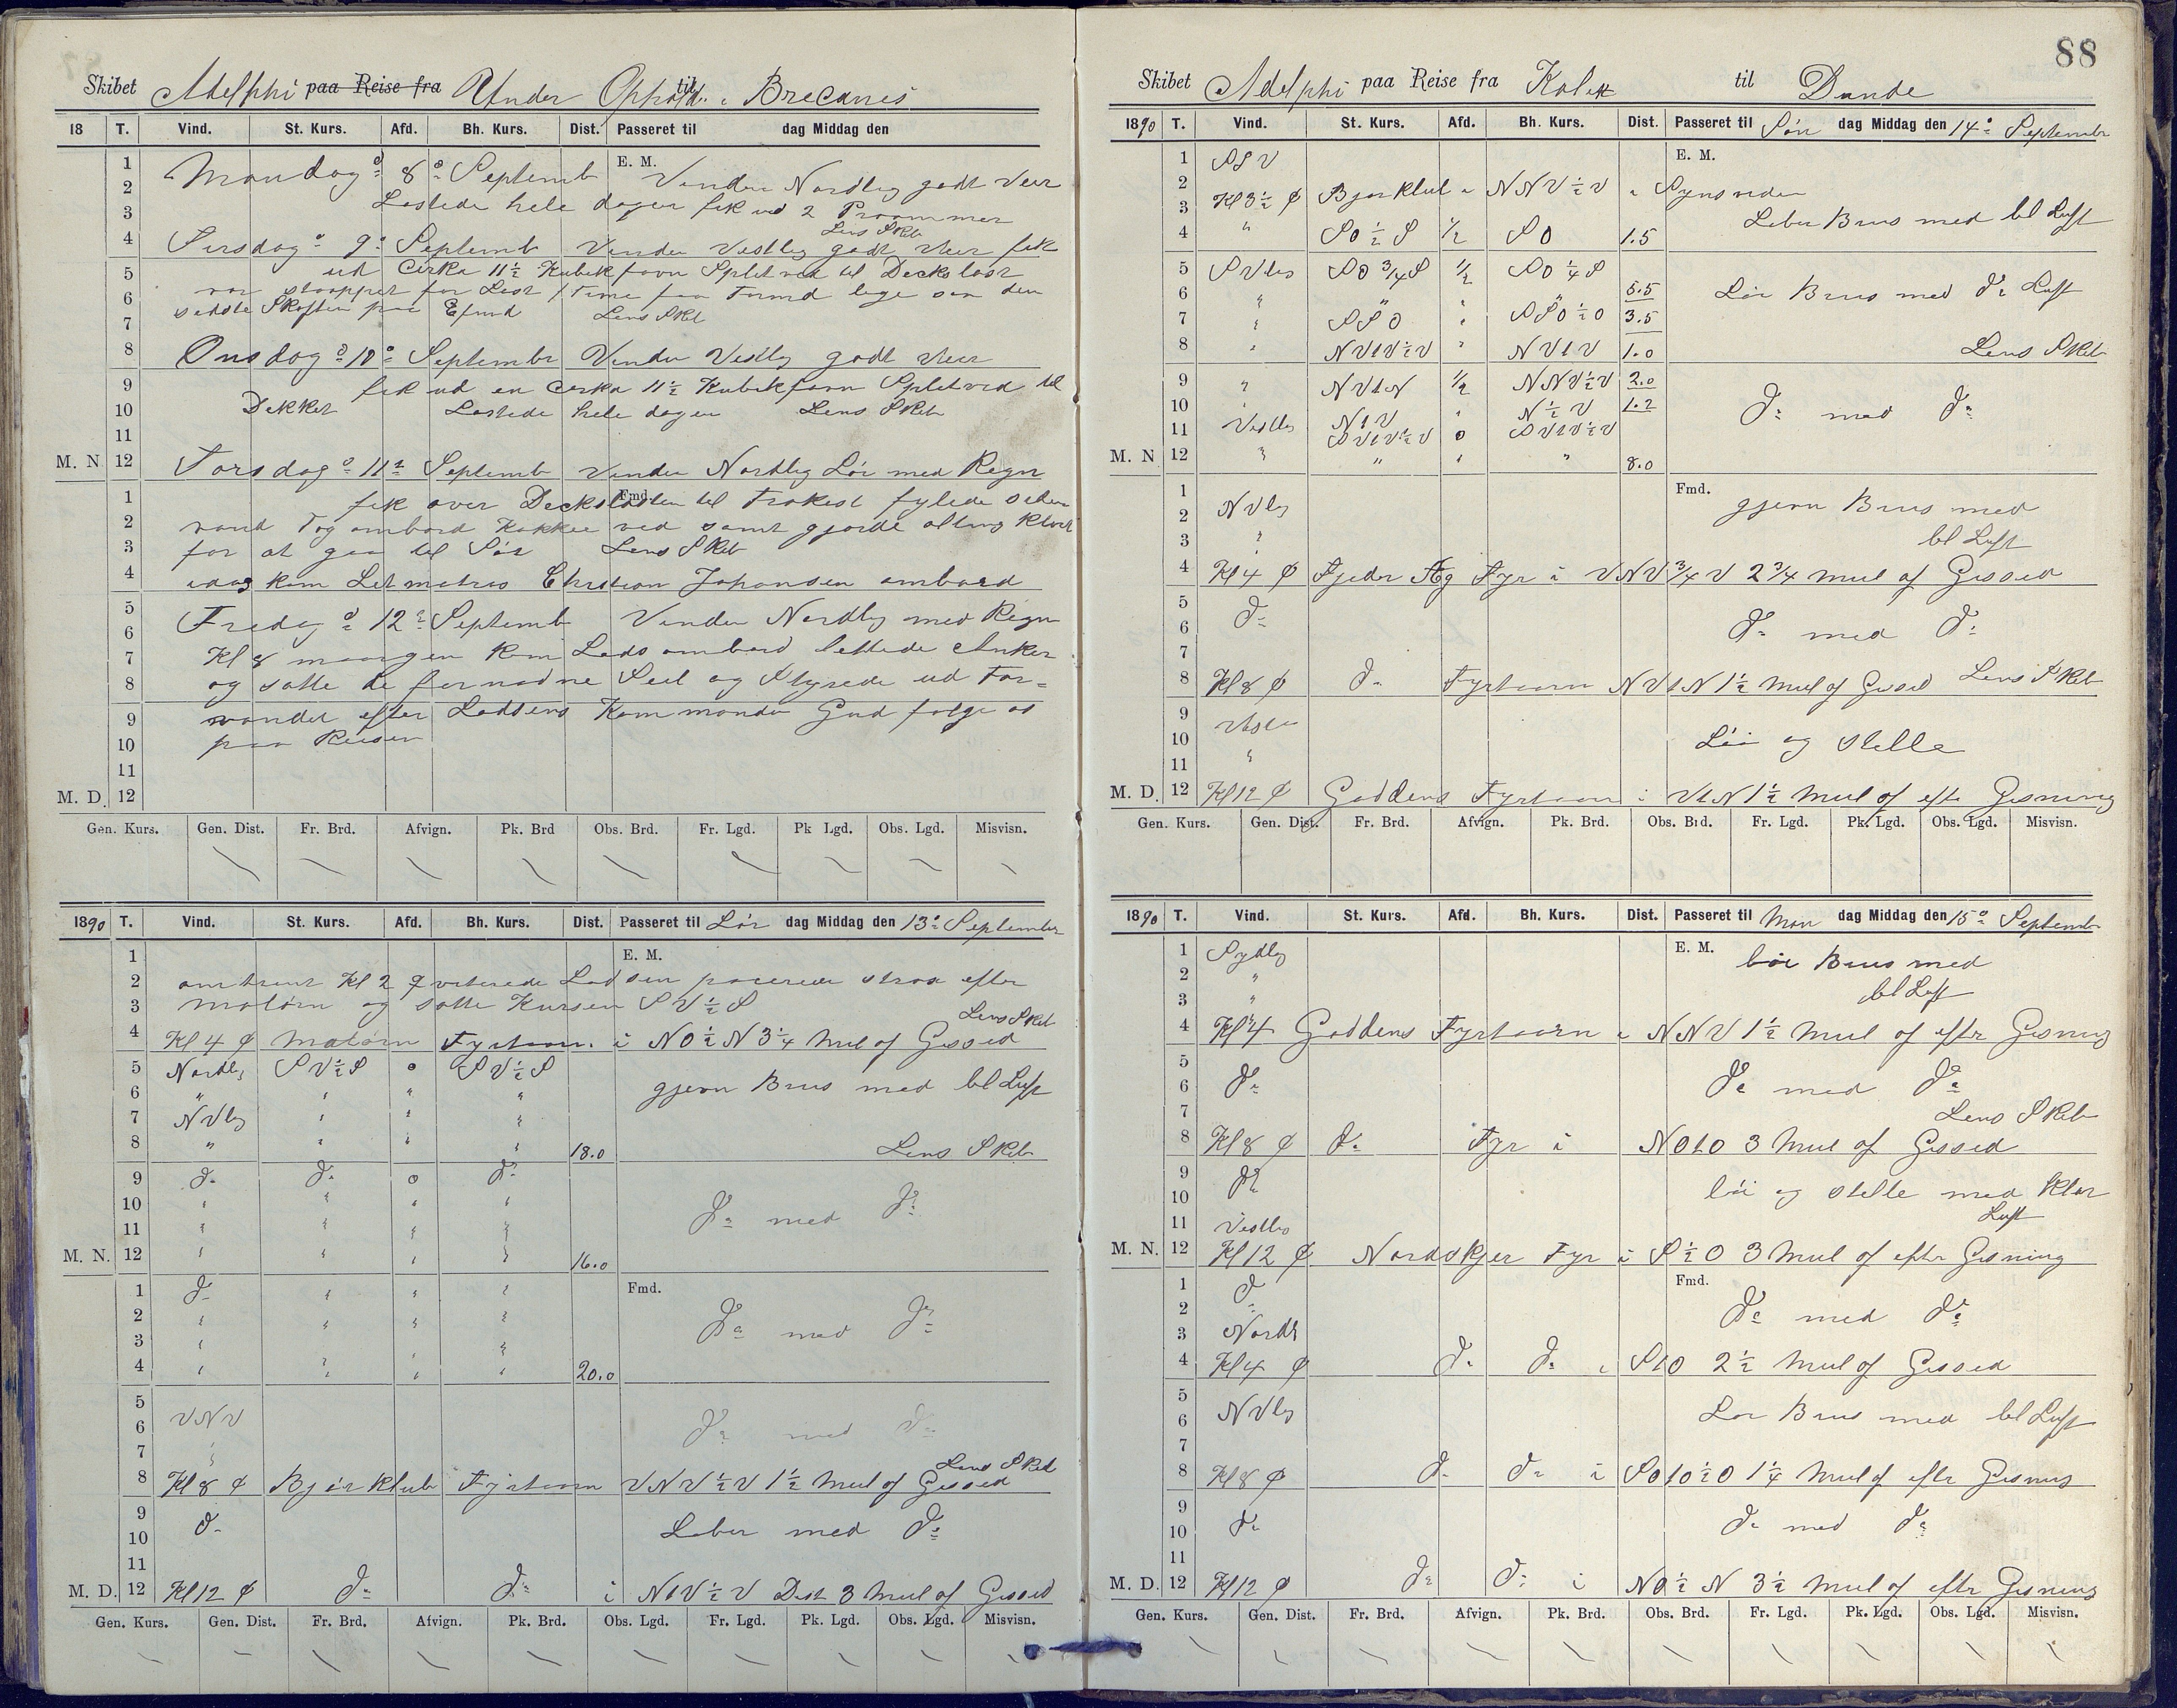 Skibet Adelphi paa Reise fra Under Ophold til i
18 T. Vind. St. Kurs. Afd. Bh. Kurs. Dist. Passeret til dag Middag den
E. M.
Mandag d 8de Septemb Vinden Nordlig godt Veir
Lastede hele dagen fik ud 2 Prammer
Lens Skib
Tirsdag d 9de Septemb Vinden Vestlig godt Veir fik
ud Cirka 11½ Kubikfavn Splitved til Deckslast
var stoppet for Last 1 Time paa Formd lige saa den
sidste Skoften paa Efmd Lens Skib
Onsdag d 10de Septembr Vinden Vestlig godt Veir
fik ud en Cirka 11½ Kubikfavn Splitved til
Dekket Lastede hele dagen Lens Skib
Torsdag d 11te Septemb Vinden Nordlig Löi med Regn
Fmd.
fik over Deckslasten til
vand Tog ombord Kokke ved samt gjorde alting klart
for at gaa til Siös Lens Skib
idag kom Letmatros Christian Johansen ombord
Fredag d 12te Septemb Vinden Nordlig med Regn
Kl 8 morgen kom Lods ombord lettede Anker
og satte de fornødne Seil og Styrede ud Far=
vandet efter Lodsens Kommando Gud følge os
paa Reisen
M. N.
M. D.
Gen. Kurs. Gen. Dist. Fr. Brd. Afvign. Pk. Brd Obs. Brd. Fr. Lgd. Pk Lgd. Obs. Lgd. Misvisn.
1890 T. Vind. St. Kurs. Afd. Bh. Kurs. Dist. Passeret til Lör dag Middag den 13de September
E. M.
omtrent Kl 2 qviterede Lodsen pacerede strax efter
Malörn og satte Kursen S V ½ S
Lens Skib
Kl 4 Ø Malörn Fyrtaarn i N O ½ N 3¼ Mil af Gissed
5 Nordlig S V ½ S o S V ½ S gjevn Bris med bl Luft
6 " " " "
7 N Vlig " " "
8 " " " " 18.0 Lens Skib
9 do do o do
10 " " " " do med do
11 " " " "
M. N. 12 " " " " 16.0
1 do " " " Fmd.
2 " " " " do med do
3 " " "
4 " " " " 20.0
5
6 V N V do med do
7 " Lens Skib
8 Kl 8 Ø Bjørklub Fyrtaarn V N V ½ V 1½ Mil af Gissed
9 do
10 Laber med do
11
M. D. 12 Kl 12 Ø do do i N t V ½ V Dist 3 Mil af Gissed
Gen. Kurs. Gen. Dist. Fr. Brd. Afvign. Pk. Brd. Obs. Lgd. Fr. Lgd. Pk. Lgd. Obs. Lgd. Misvisn.
88
Skibet Adelphi paa Reise fra Kalix til Dunde
1890 T. Vind. St. Kurs. Afd. Bh. Kurs. Dist. Passeret til Søn dag Middag den 14de September
1 S S V E. M.
2
3 Kl 3½ Ø Bjorklub i N N V ½ V i Synsviden
Laber Bris med bl Luft
4 " S O ½ S ½ S O 1.5
5 S Vlig S O ¾ S ½ S O ¼ S
6 " " " " 5.5 Löi Bris med do Luft
7 " S S O " S S O ½ O 3.5
8 " N V t V ½ V " N V t V 1.0 Lens Skib
9 " N V t N ½ N N V ½ V 2.0
10 " N t V " N ½ V 1.2 do med do
11 Vestlig S V t V ½ V o S V t V ½ V
M. N 12 " " " " 8.0
1 Fmd.
2 N Vlig gjevn Bris med
3 " bl Luft
4 Kl 4 Ø Fjeder Æg Fyr i V N V ¾ V 2¾ Mil af Gissed
5 do
6 do med do
7
8 Kl 8 Ø do Fyrtaarn N V t N 1½ Mil af Gissed Lens Skib
9 Vestlig
10 Löi og stille
11 "
M. D. 12 Kl 12 Ø Gaddens Fyrtaarn i V t N 1½ Mil af efter Gisning
Gen. Kurs. Gen. Dist. Fr. Brd. Afvign. Pk. Brd. Obs. Brd. Fr. Lgd. Pk. Lgd. Obs. Lgd. Misvisn.
1890 T. Vind. St. Kurs. Afd. Bh. Kurs. Dist. Passeret til Man dag Middag den 15de September
1 Sydlig E. M. löi Bris med
2 "
3 " bl Luft
4 Kl 4 Gaddens Fyrtaarn i N N V 1½ Mil af efter Gisning
5
6 do do med do
7 Lens Skib
8 Kl 8 Ø do Fyr i N O t O 3 Mil af Gissed
9 do
10 löi og stille med Klar
11 Vestlig Luft
M. N. 12 Kl 12 Ø Nordskjer Fyr i S ½ O 3 Mil af efter Gisning
1 do Fmd.
2 " do med do
3 Nordl
4 Kl 4 Ø do do i S t O 2½ Mil af Gissed
5
6 N Vlig Löi Bris med bl Luft
7
8 Kl 8 Ø do do i S O t O ½ O 1¼ Mil af efter Gisning
9
10 do do med do
11
M. D. 12 Kl 12 Ø do do i N O ½ N 3½ Mil af efter Gisning
Gen. Kurs. Gen. Dist. Fr. Brd. Afvign. Pk. Brd. Obs. Brd. Fr. Lgd. Pk. Lgd. Obs. Lgd. Misvisn.